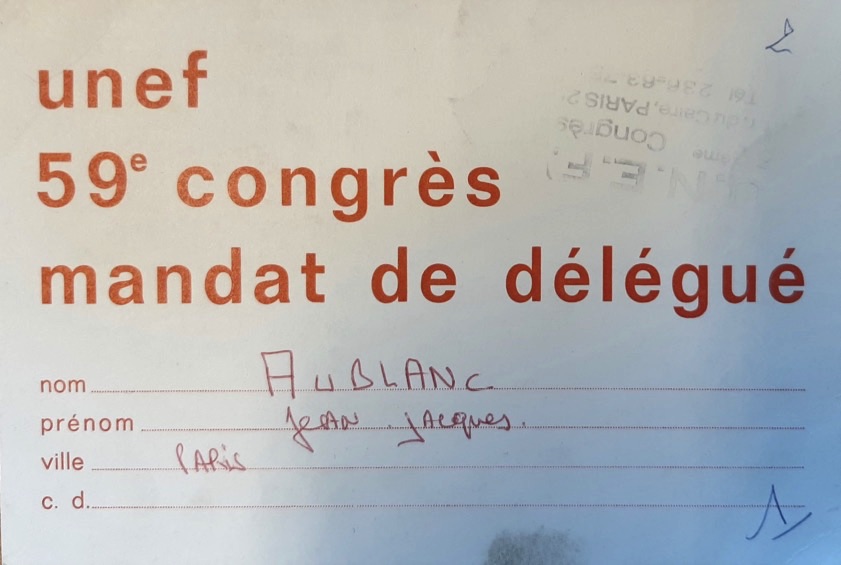 2
unef
59e congrès
mandat de délégué
U.N.E.F.
Congrès
du Caire, PARIS 2
Tél 236.83
nom AUBLANC
prénom jean jacques.
ville PARis
c. d.